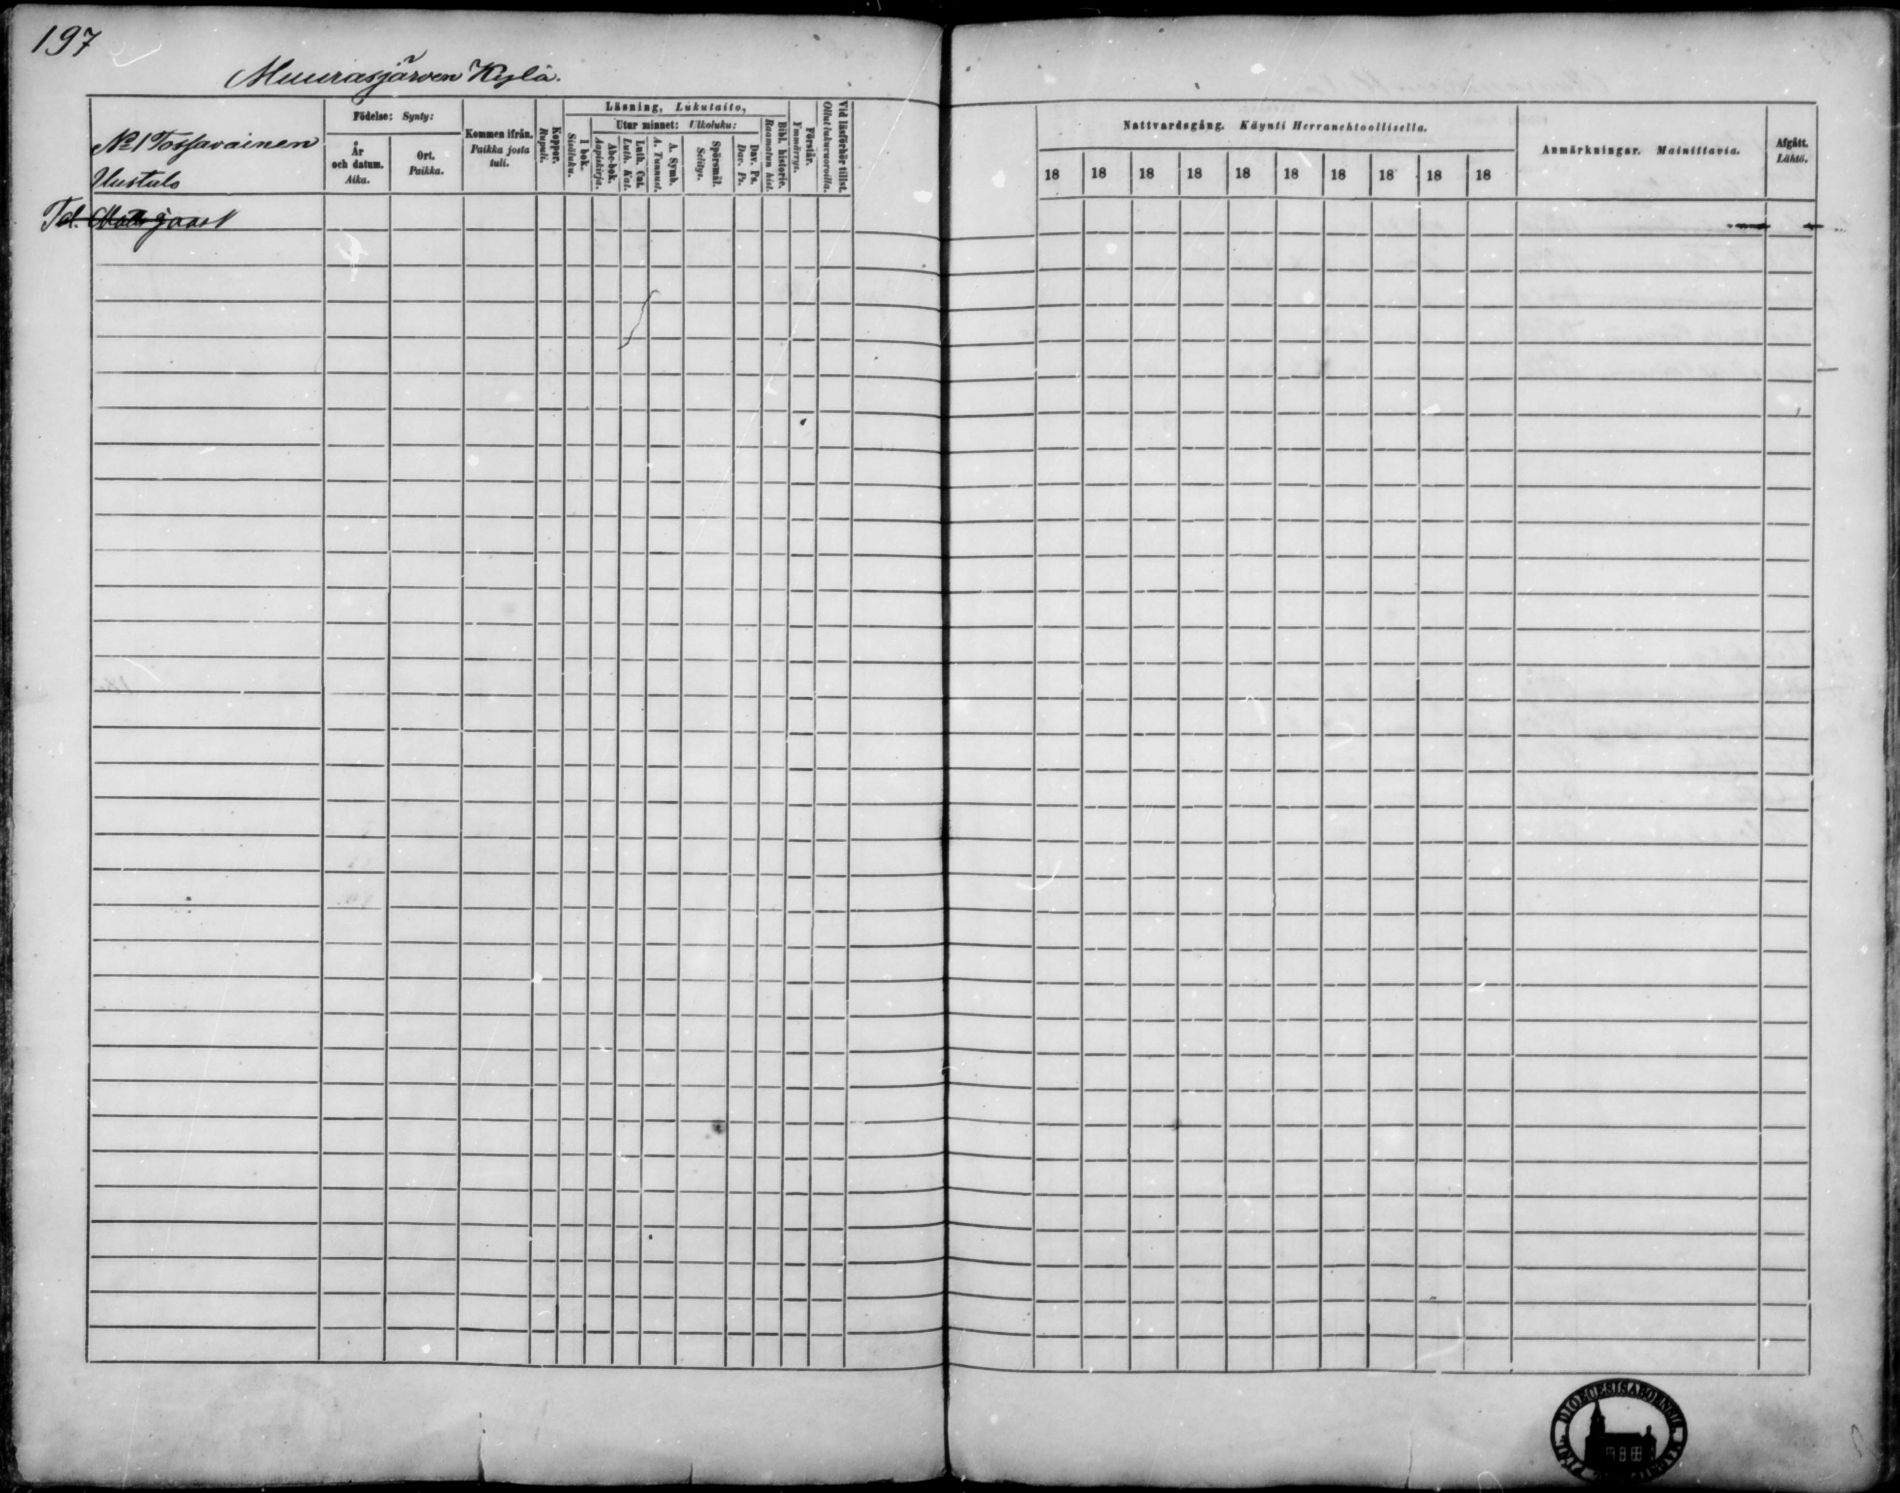 197
Muurasjärven Kylä.
No 1 Tossavainen
Uustulo
Födelse: Synty:
År och datum. Aika.
Ort. Paikka.
Kommen ifrån. Paikka josta tuli.
Koppor. Rupuli.
Läsning, Lukutaito,
I bok. Sisäluku.
Utur minnet: Ulkoluku:
Abc-bok. Aapiskirja.
Luth. Cat. Luth. Kat.
A. Symb. A. Tunnust.
Spörsmål. Selitys.
Dav. Ps. Dav. Ps.
Bibl. historie. Raamatun hist.
Förstår. Ymmärrys.
Vid läsförhör tillst. Ollut lukuvuoroilla.
Td.
Nattvardsgång. Käynti Herranehtoollisella.
18 18 18 18 18 18 18 18 18 18
Anmärkningar. Mainittavia.
Afgått. Lähtö.